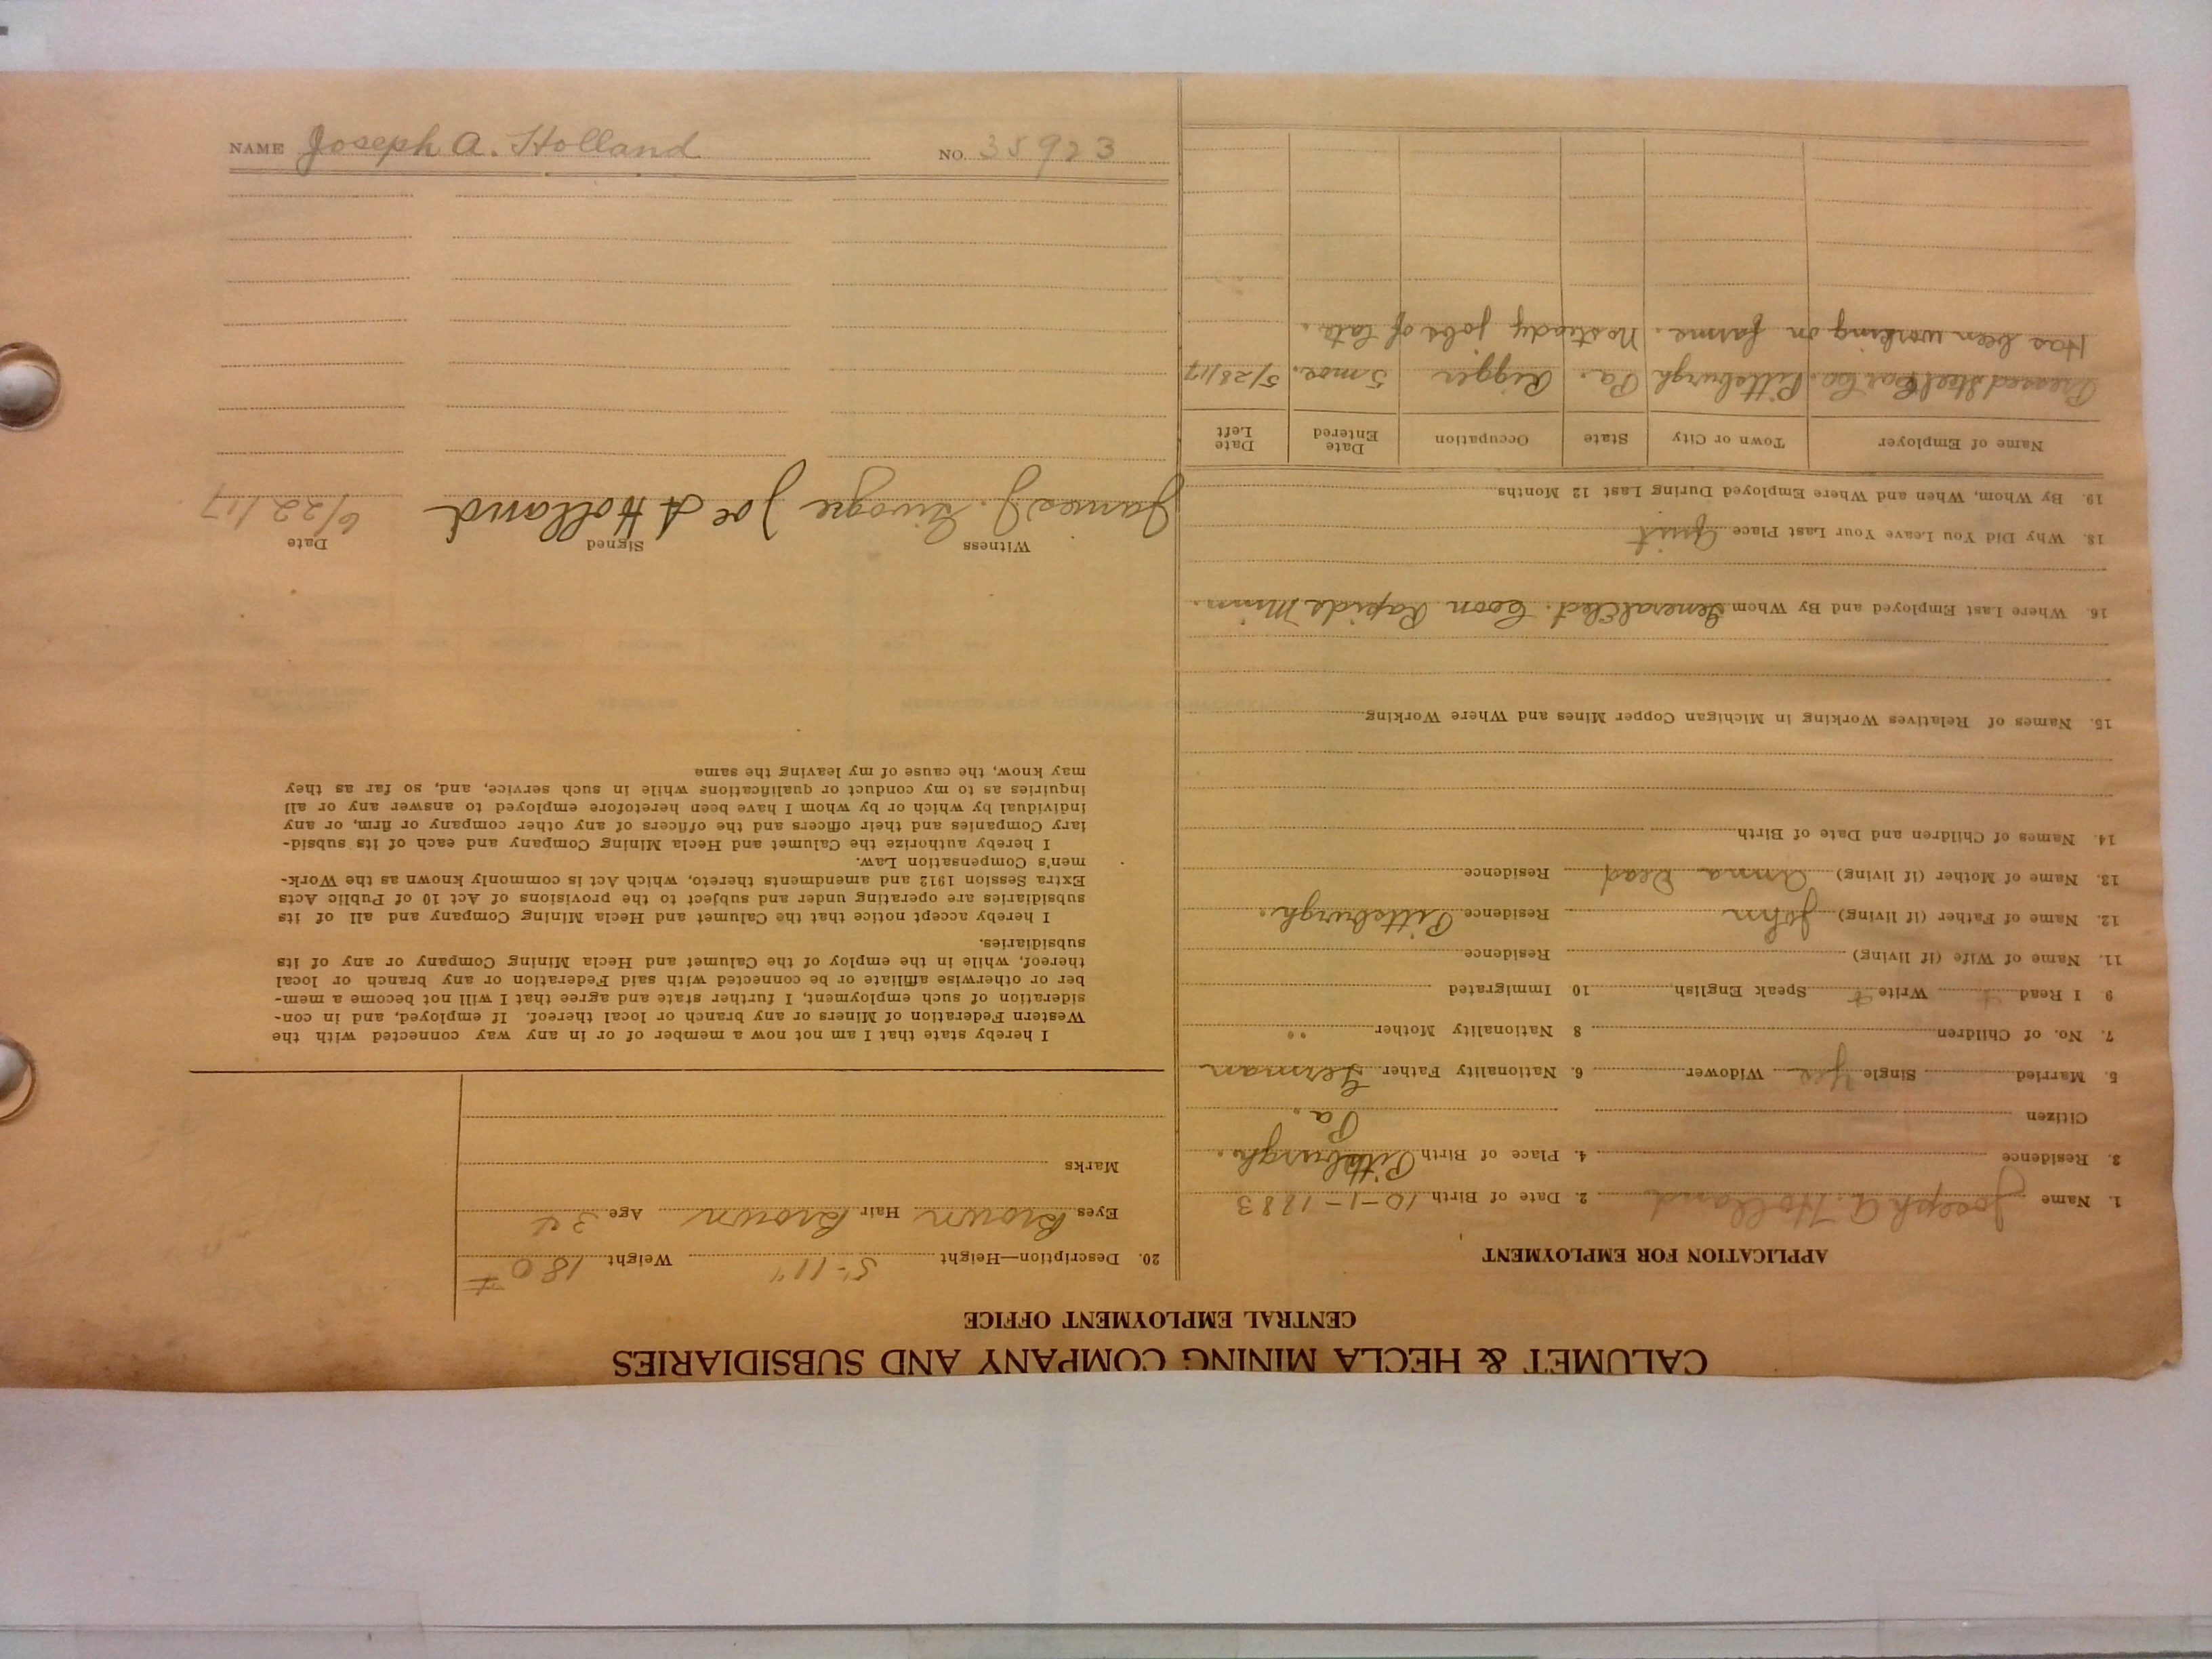 CALUMET & HECLA MINING COMPANY AND SUBSIDIARIES
CENTRAL EMPLOYMENT OFFICE
APPLICATION FOR EMPLOYMENT
1. Name Joseph A. Holland 2. Date of Birth 10-1-1883
3. Residence 4. Place of Birth Pittsburgh.
Citizen Pa.
5. Married Single Yes Widower 6. Nationality Father German
7. No. of Children 8 Nationality Mother "
9 I Read + Write + Speak English 10 Immigrated
11. Name of Wife (if living) Residence
12. Name of Father (if living) John Residence Pittsburgh.
13. Name of Mother (if living) Anna Dead Residence
14. Names of Children and Date of Birth
15. Names of Relatives Working in Michigan Copper Mines and Where Working
16. Where Last Employed and By Whom General Elect. Coon Rapids Minn.
18. Why Did You Leave Your Last Place Quit
19. By Whom, When and Where Employed During Last 12 Months
Name of Employer Town or City State Occupation Date Entered Date Left
Pressed Steel Car Co. Pittsburgh Pa. Rigger 5 mos. 5/28/17
Has been working on farms. No steady jobs of late.
20. Description—Height 5'-11" Weight 180 #
Eyes Brown Hair Brown Age 34
Marks
I hereby state that I am not now a member of or in any way connected with the
Western Federation of Miners or any branch or local thereof. If employed, and in con-
sideration of such employment, I further state and agree that I will not become a mem-
ber or otherwise affiliate or be connected with said Federation or any branch or local
thereof, while in the employ of the Calumet and Hecla Mining Company or any of its
subsidiaries.
I hereby accept notice that the Calumet and Hecla Mining Company and all of its
subsidiaries are operating under and subject to the provisions of Act 10 of Public Acts
Extra Session 1912 and amendments thereto, which Act is commonly known as the Work-
men's Compensation Law.
I hereby authorize the Calumet and Hecla Mining Company and each of its subsid-
iary Companies and their officers and the officers of any other company or firm, or any
individual by which or by whom I have been heretofore employed to answer any or all
inquiries as to my conduct or qualifications while in such service, and, so far as they
may know, the cause of my leaving the same
Witness Signed Date
James J. Joe A Holland 6/22/17
NAME Joseph A. Holland NO. 35923